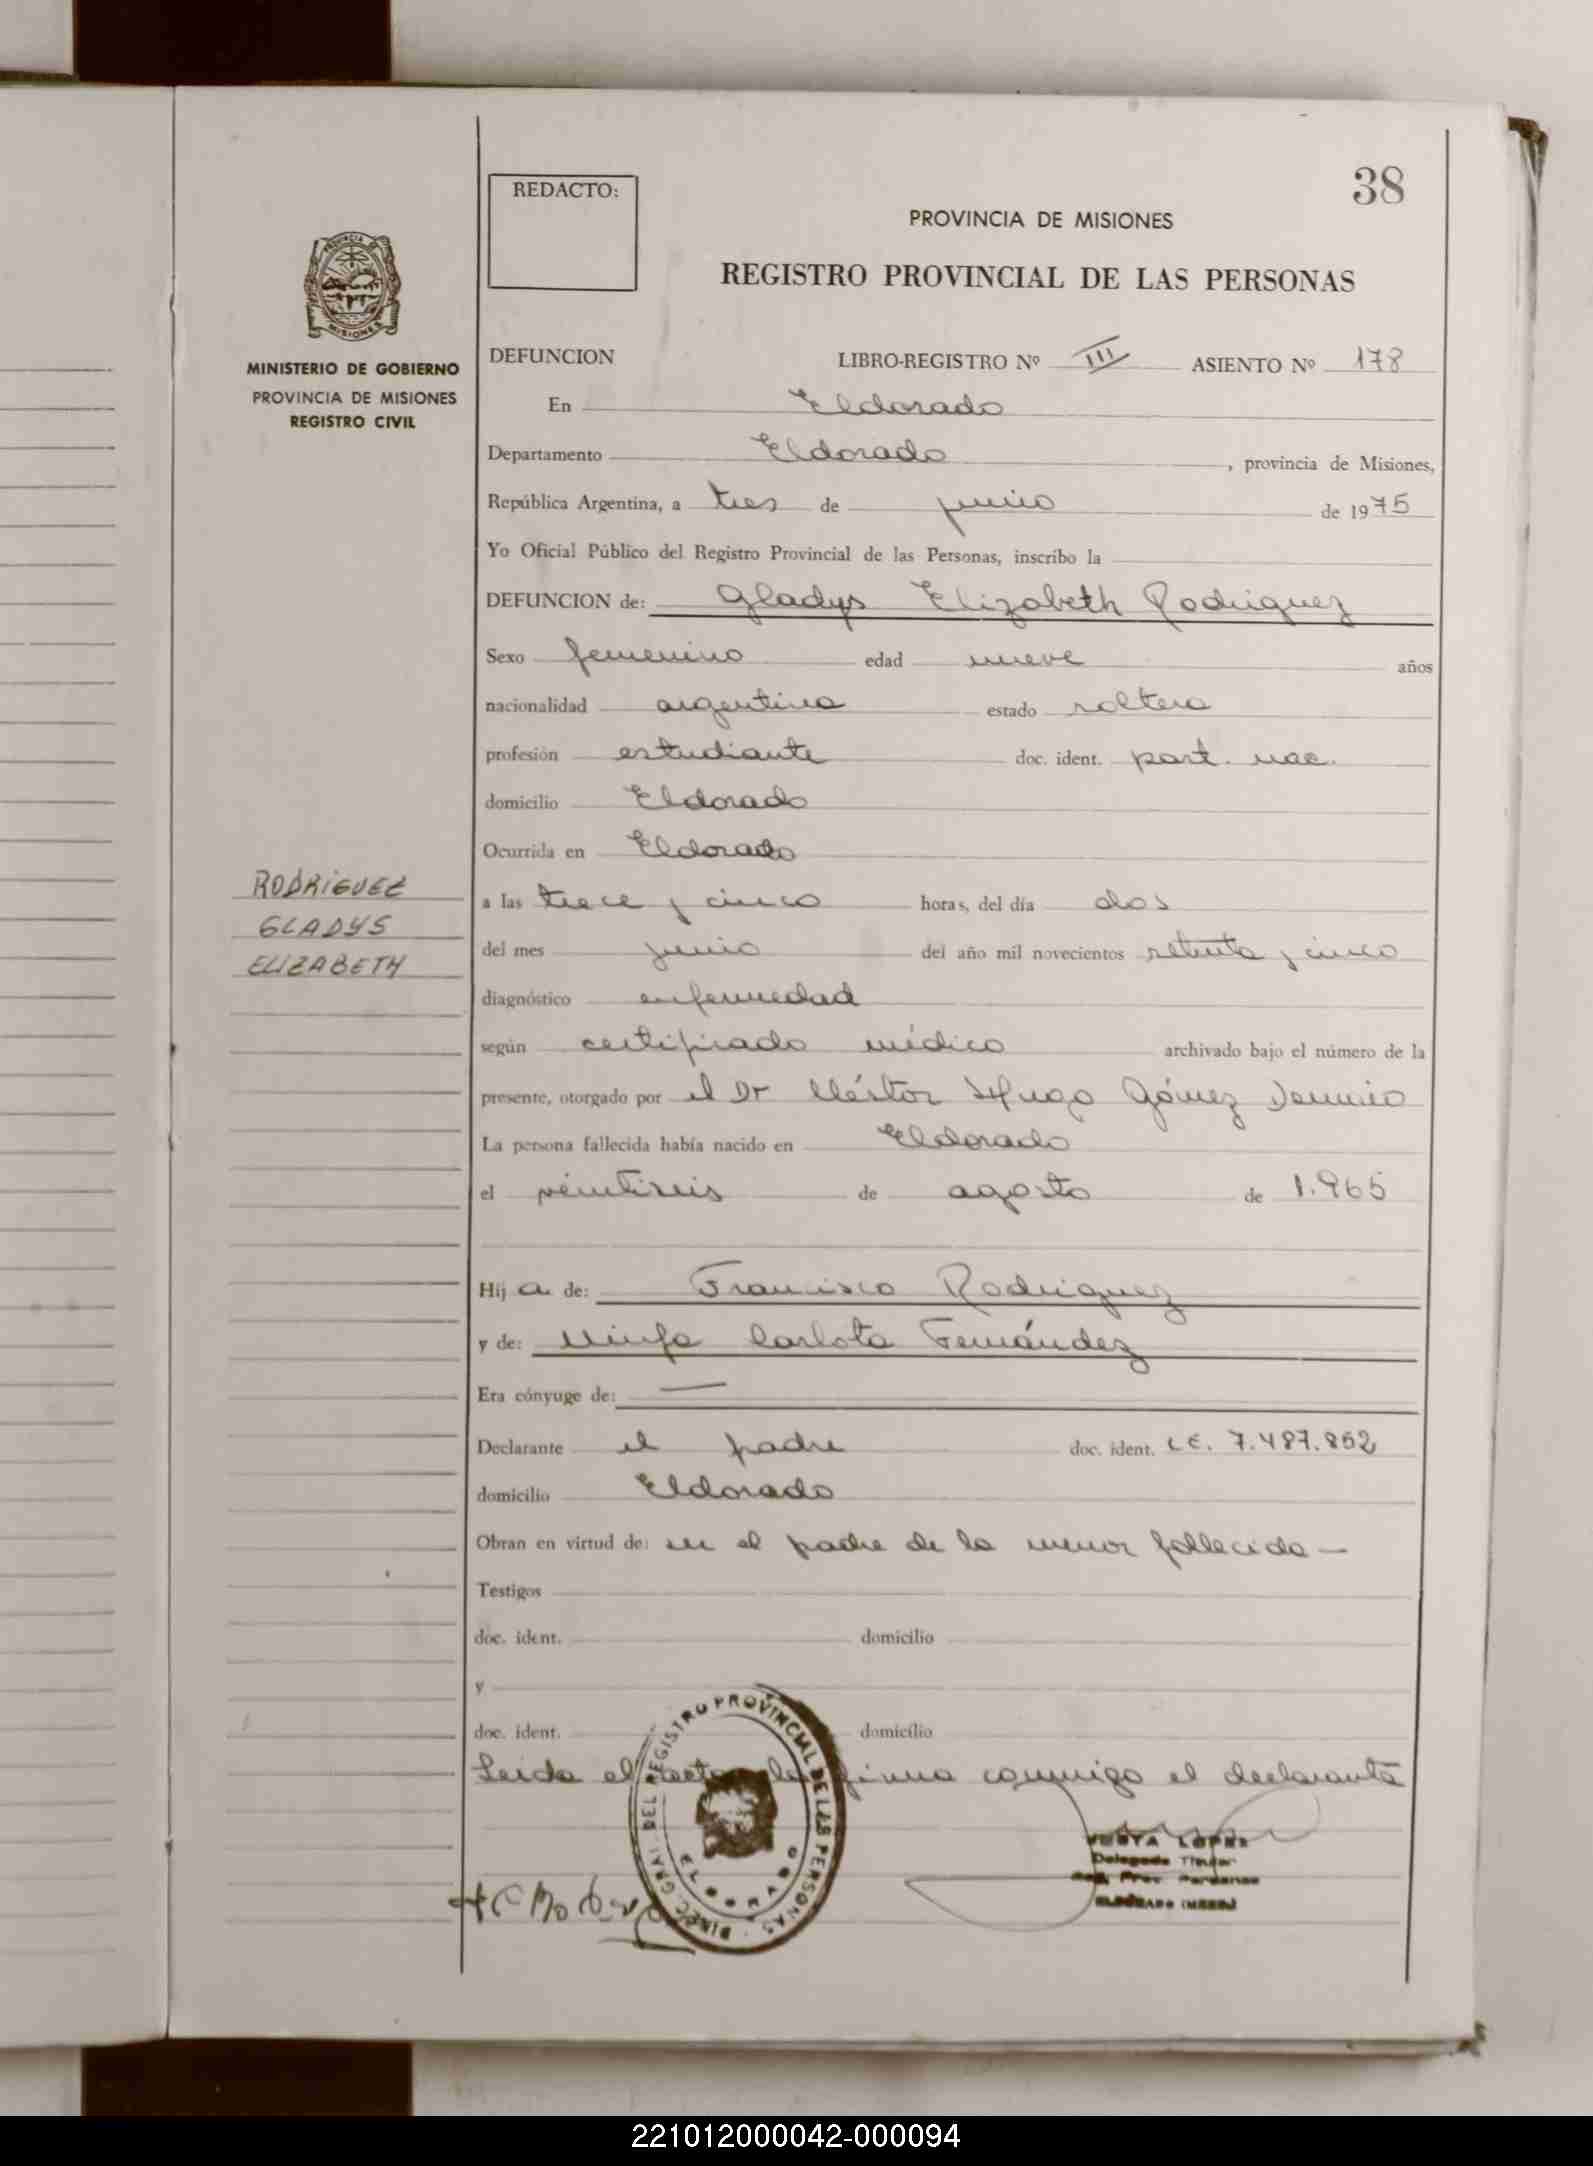 38
REDACTO:
PROVINCIA DE MISIONES
REGISTRO PROVINCIAL DE LAS PERSONAS
PROVINCIA DE
MISIONES
MINISTERIO DE GOBIERNO
PROVINCIA DE MISIONES
REGISTRO CIVIL
DEFUNCION LIBRO-REGISTRO Nº III ASIENTO Nº 178
En Eldorado
Departamento Eldorado , provincia de Misiones,
República Argentina, a tres de junio de 1975
Yo Oficial Público del Registro Provincial de las Personas, inscribo la
DEFUNCION de: Gladys Elizabeth Rodriguez
Sexo femenino edad nueve años
nacionalidad argentina estado soltera
profesión estudiante doc. ident. part. nac.
domicilio Eldorado
Ocurrida en Eldorado
RODRIGUEZ
GLADYS
ELIZABETH
a las trece y cinco horas, del día dos
del mes junio del año mil novecientos setenta y cinco
diagnóstico enfermedad
según certificado médico archivado bajo el número de la
presente, otorgado por el Dr Néstor Hugo Gómez
La persona fallecida había nacido en Eldorado
el veintiseis de agosto de 1.965
Hij a de: Francisco Rodriguez
y de: Ninfa Carlota Fernández
Era cónyuge de: —
Declarante el padre doc. ident. L.E. 7.487.852
domicilio Eldorado
Obran en virtud de: ser el padre de la menor fallecida —
Testigos
doc. ident. domicilio
y
doc. ident. domicilio
Leida el acta, la firma conmigo el declarante
DIREC. GRAL. DEL REGISTRO PROVINCIAL DE LAS PERSONAS
ELDORADO
LOPEZ
Delegada Titular
Reg. Prov. Personas
ELDORADO (MNES)
221012000042-000094